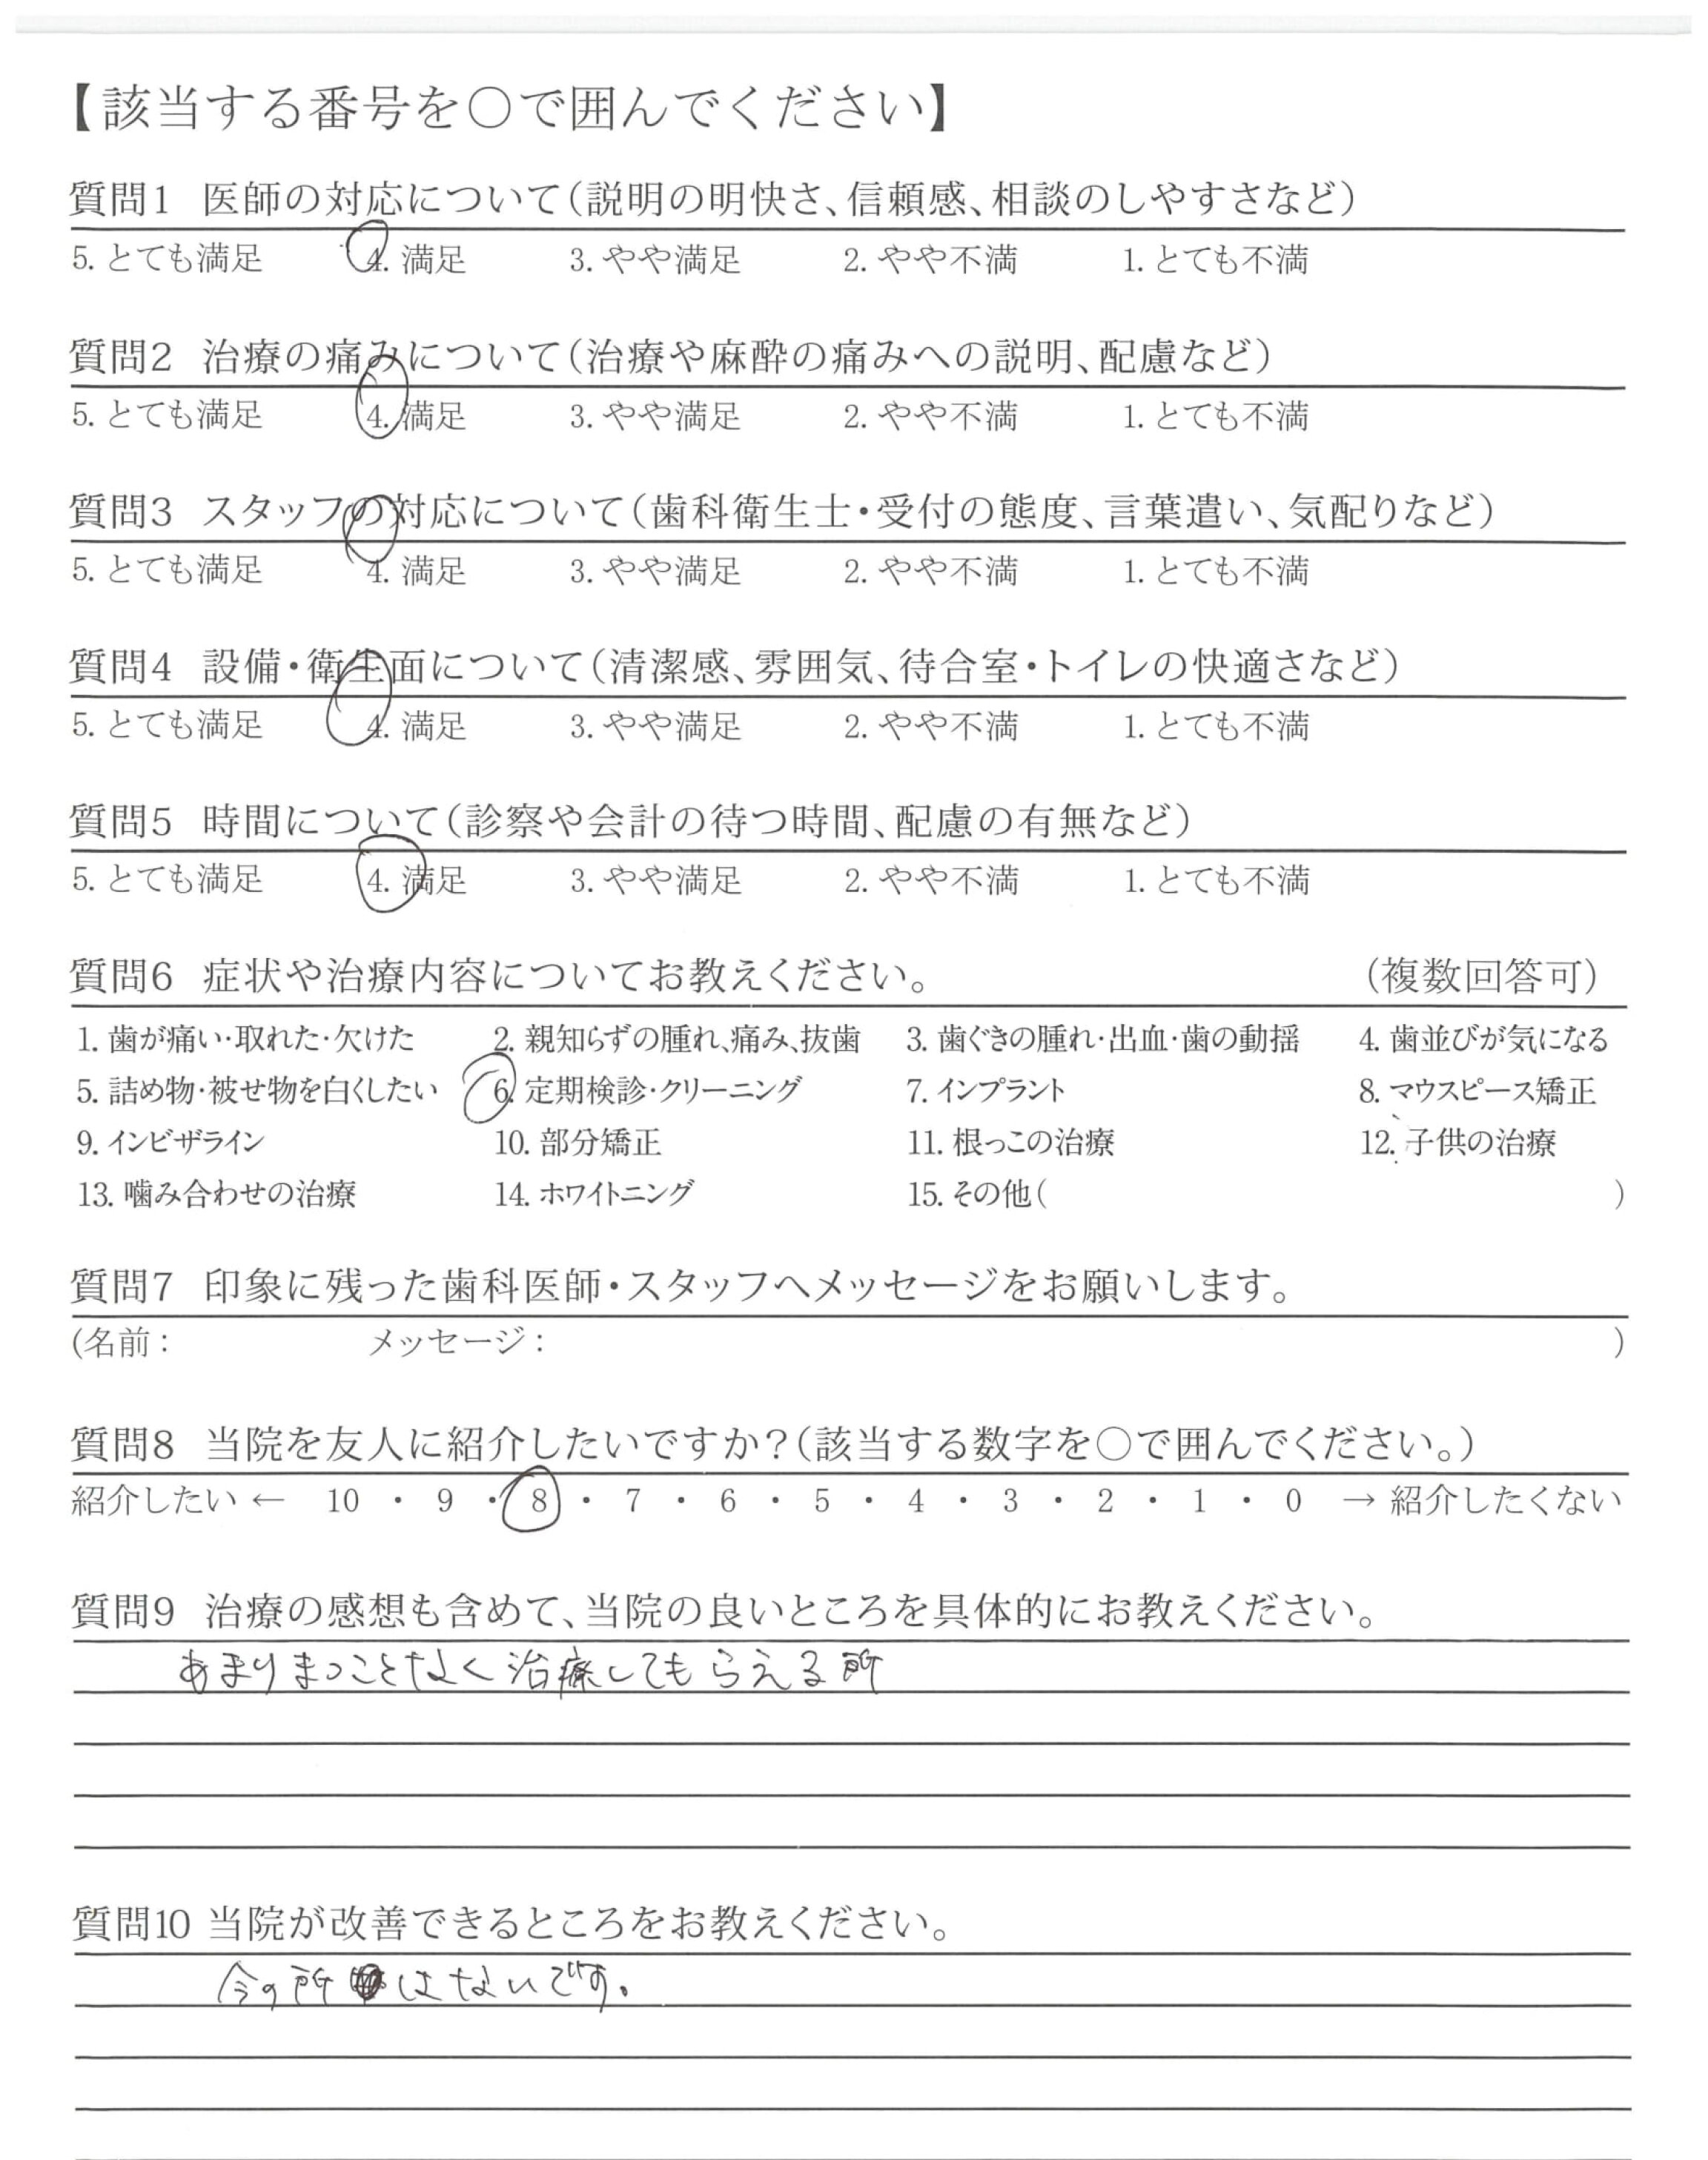 【該当する番号を○で囲んでください】
質問1 医師の対応について(説明の明快さ、信頼感、相談のしやすさなど)
5. とても満足 4. 満足 3. やや満足 2. やや不満 1. とても不満
質問2 治療の痛みについて(治療や麻酔の痛みへの説明、配慮など)
5. とても満足 4. 満足 3. やや満足 2. やや不満 1. とても不満
質問3 スタッフの対応について(歯科衛生士・受付の態度、言葉遣い、気配りなど)
5. とても満足 4. 満足 3. やや満足 2. やや不満 1. とても不満
質問4 設備・衛生面について(清潔感、雰囲気、待合室・トイレの快適さなど)
5. とても満足 4. 満足 3. やや満足 2. やや不満 1. とても不満
質問5 時間について(診察や会計の待つ時間、配慮の有無など)
5. とても満足 4. 満足 3. やや満足 2. やや不満 1. とても不満
質問6 症状や治療内容についてお教えください。 (複数回答可)
1. 歯が痛い・取れた・欠けた 2. 親知らずの腫れ、痛み、抜歯 3. 歯ぐきの腫れ・出血・歯の動揺 4. 歯並びが気になる
5. 詰め物・被せ物を白くしたい 6. 定期検診・クリーニング 7. インプラント 8. マウスピース矯正
9. インビザライン 10. 部分矯正 11. 根っこの治療 12. 子供の治療
13. 噛み合わせの治療 14. ホワイトニング 15. その他( )
質問7 印象に残った歯科医師・スタッフへメッセージをお願いします。
(名前: メッセージ: )
質問8 当院を友人に紹介したいですか?(該当する数字を○で囲んでください。)
紹介したい ← 10 ・ 9 ・ 8 ・ 7 ・ 6 ・ 5 ・ 4 ・ 3 ・ 2 ・ 1 ・ 0 → 紹介したくない
質問9 治療の感想も含めて、当院の良いところを具体的にお教えください。
あまりまつことなく治療してもらえる所
質問10 当院が改善できるところをお教えください。
今の所はないです。